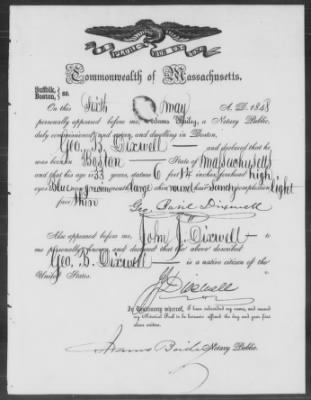 Commonwealth of Massachusetts.
Suffolk,
Boston, ss.
On this Sixth May A. D. 1848
personally appeared before me, Adams Bailey, a Notary Public,
duly commissioned and sworn, and dwelling in Boston,
Geo. B. Dixwell and declared that he
was born Boston State of Massachusetts
and that he is 33 years, stature 6 feet inches, forehead high
eyes Blue nose mouth large chin round hair Sandy complexion light
face thin
Geo. Basil Dixwell
Also appeared before me, John J. Dixwell to
me personally known and declared that the above described
Geo. B. Dixwell is a native citizen of the
United States.
J. J. Dixwell
In testimony whereof, I have subscribed my name, and caused
my Notarial Seal to be hereunto affixed the day and year first
above written.
Adams Bailey Notary Public.